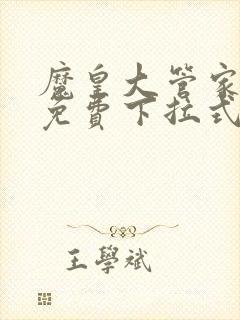 魔皇大管家
免費下拉式
王學斌